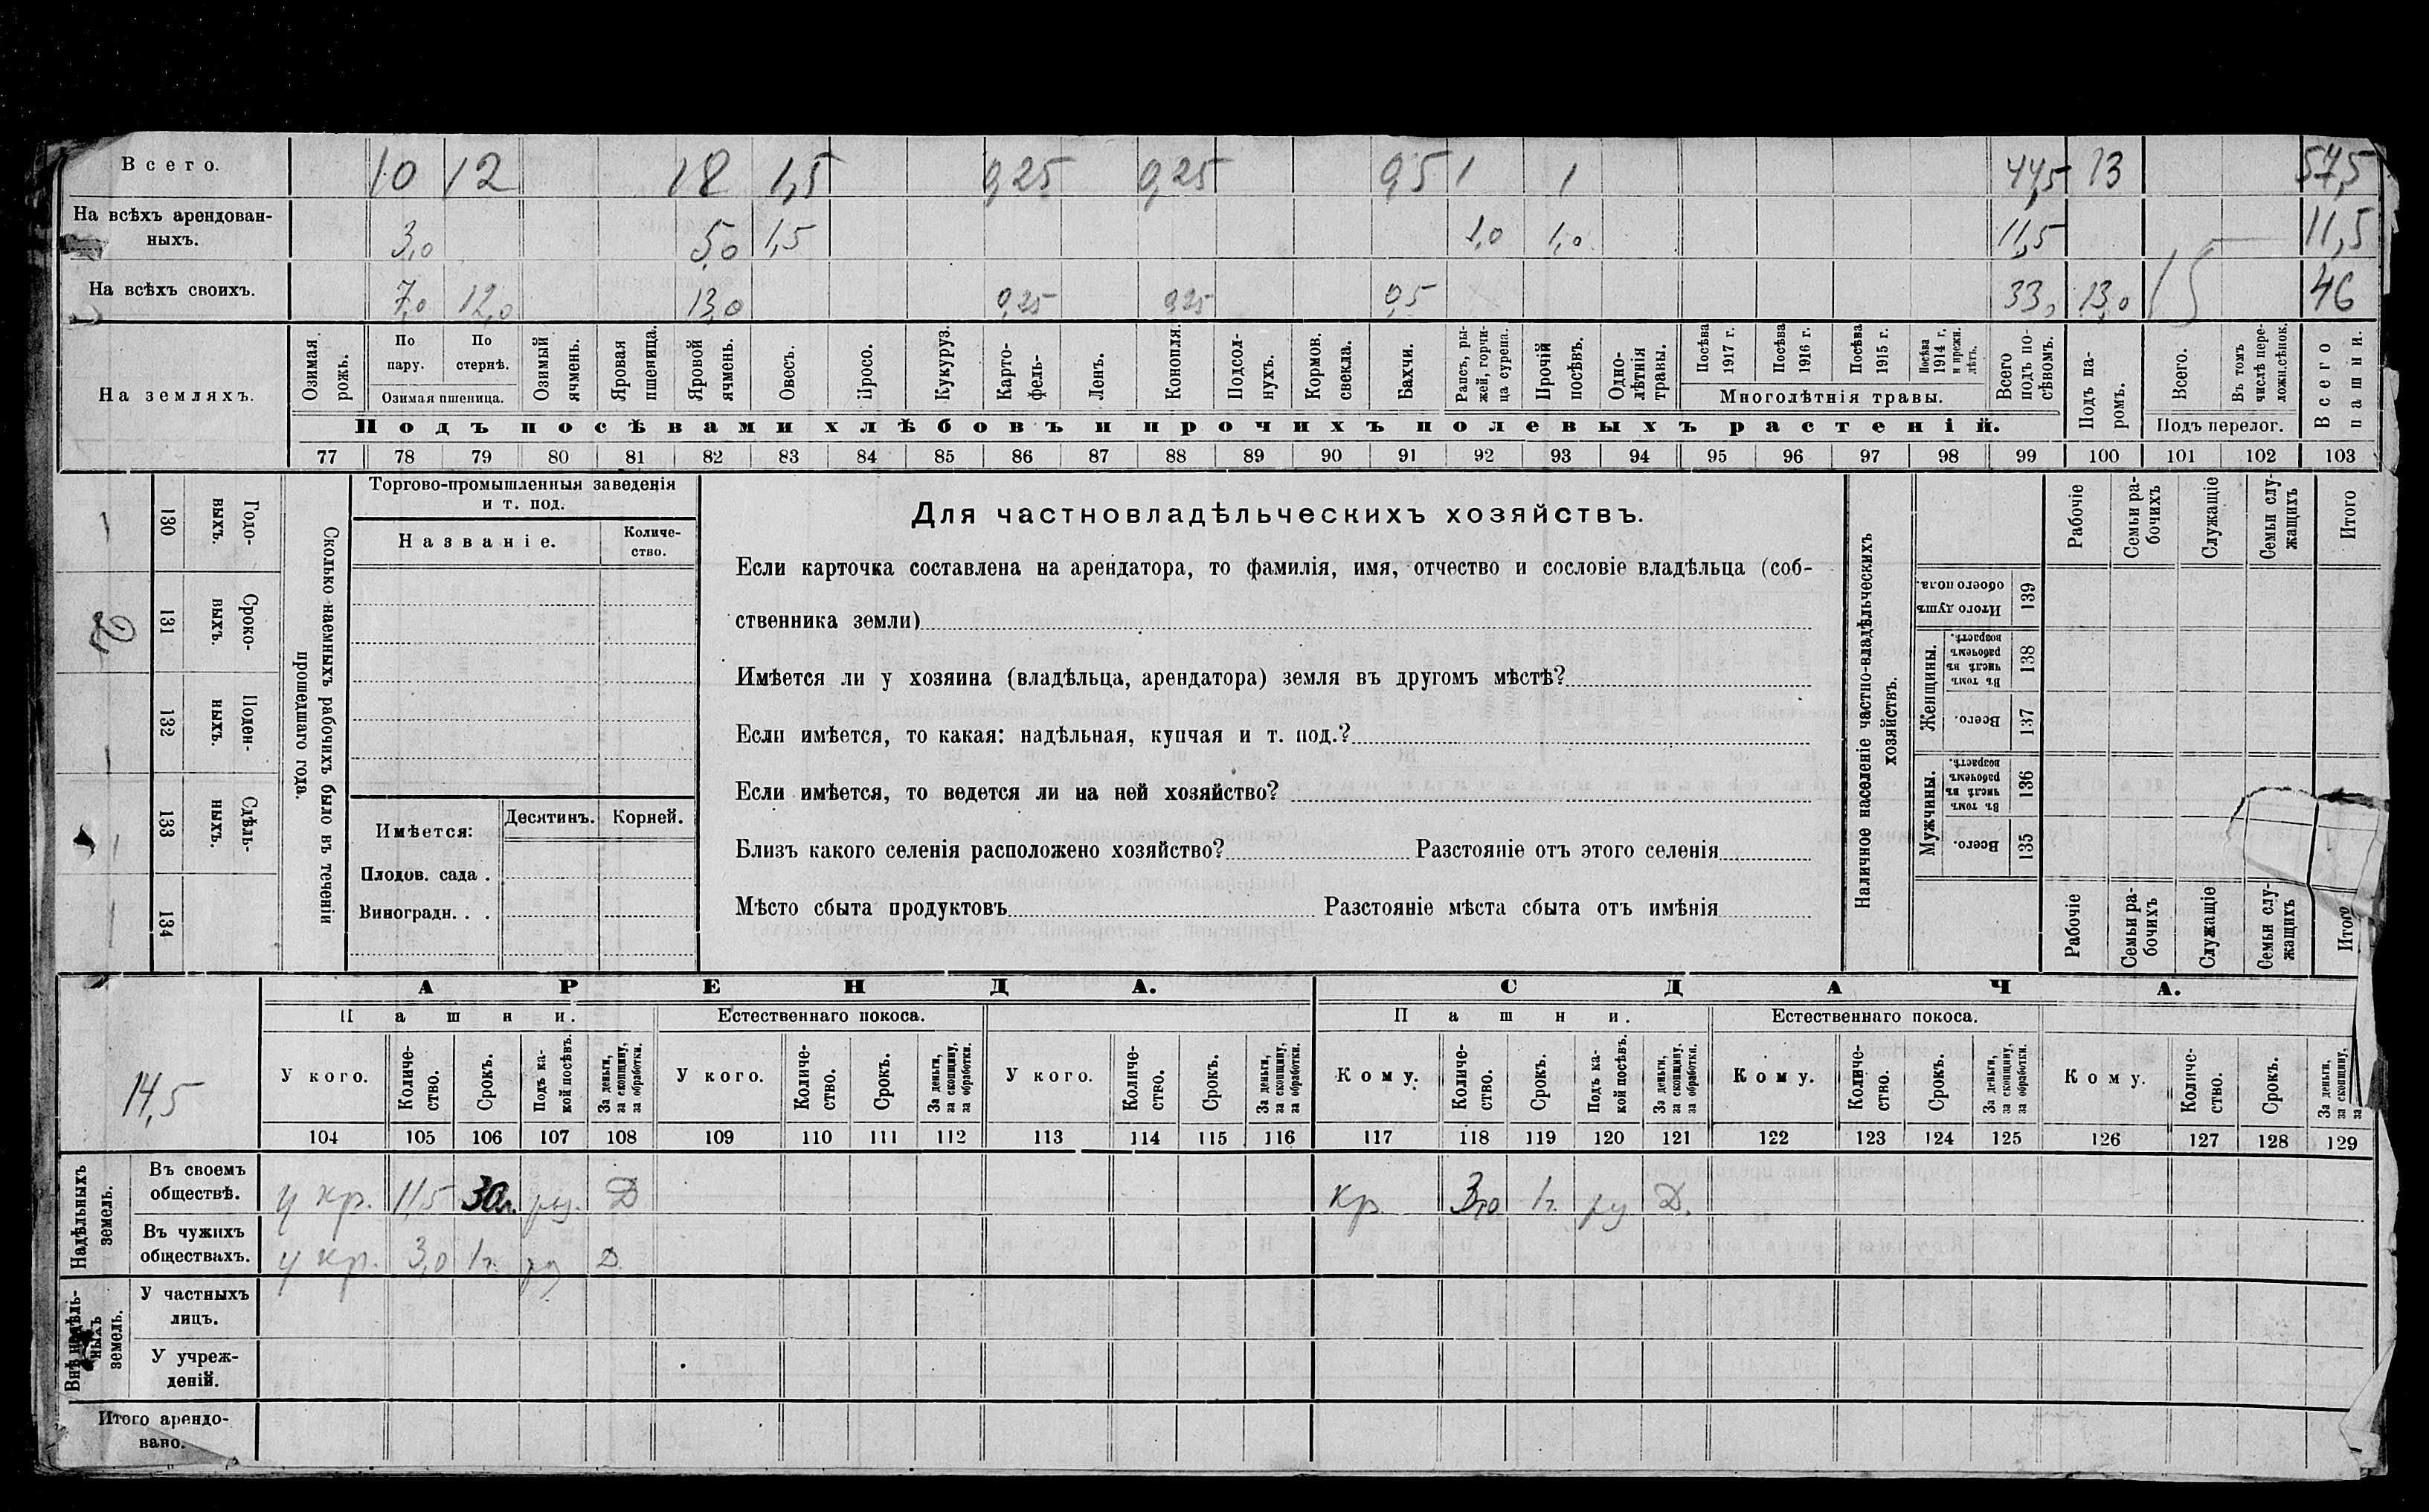 Всего. 10 12 18 1,5 0,25 0,25 0,5 1 1 44,5 13 57,5
На всѣхъ арендован-
ныхъ. 3,0 5,0 1,5 1,0 1,0 11,5 11,5
На всѣхъ своихъ. 7,0 12,0 13,0 0,25 0,25 0,5 33, 13,0 46
На земляхъ.
Озимая рожь.
По пару.
По стернѣ.
Озимая пшеница.
Озимый ячмень.
Яровая пшеница.
Яровой ячмень.
Овесъ.
Просо.
Кукуруз.
Карто-
фель-
Ленъ.
Конопля.
Подсол-
нухъ.
Кормов.
свекла.
Бахчи.
Рапсъ, ры-
жей, горчи-
ца сурепа.
Прочій
посѣвъ.
Одно-
лѣтнія
травы.
Посѣва
1917 г.
Посѣва
1916 г.
Посѣва
1915 г.
Посѣва
1914 г.
и прежн.
лѣтъ.
Многолѣтнія травы.
Всего
подъ по-
сѣвомъ.
Подъ па-
ромъ.
Всего.
Въ томъ
числѣ пере-
ложн. сѣнок.
Подъ перелог.
Всего
пашни.
Подъ посѣвами хлѣбовъ и прочихъ полевыхъ растеній.
77 78 79 80 81 82 83 84 85 86 87 88 89 90 91 92 93 94 95 96 97 98 99 100 101 102 103
Годо-
выхъ.
130
Сроко-
выхъ.
131
Поден-
ныхъ.
132
Сдѣль-
ныхъ.
133
134
Сколько наемныхъ рабочихъ было въ теченіи
прошедшаго года.
Торгово-промышленныя заведенія
и т. под.
Названіе.
Количе-
ство.
Имѣется:
Десятинъ. Корней.
Плодов. сада .
Виноградн. . .
Для частновладѣльческихъ хозяйствъ.
Если карточка составлена на арендатора, то фамилія, имя, отчество и сословіе владѣльца (соб-
ственника земли)
Имѣется ли у хозяина (владѣльца, арендатора) земля въ другомъ мѣстѣ?
Если имѣется, то какая: надѣльная, купчая и т. под.?
Если имѣется, то ведется ли на ней хозяйство?
Близъ какого селенія расположено хозяйство? Разстояніе отъ этого селенія
Мѣсто сбыта продуктовъ Разстояніе мѣста сбыта отъ имѣнія
Наличное населеніе частно-владѣльческихъ
хозяйствъ.
Рабочіе
Семьи ра-
бочихъ
Служащіе
Семьи слу-
жащихъ
Итого
Итого душъ
обоего пола.
139
Женщины.
Въ томъ
числѣ въ
рабочемъ
возрастѣ.
138
Всего.
137
Мужчины.
Въ томъ
числѣ въ
рабочемъ
возрастѣ.
136
Всего.
135
Рабочіе
Семьи ра-
бочихъ
Служащіе
Семьи слу-
жащихъ
Итого
14,5
АРЕНДА. СДАЧА.
Пашни. Естественнаго покоса. Пашни. Естественнаго покоса.
У кого.
Количе-
ство.
Срокъ.
Подъ ка-
кой посѣвъ.
За деньги,
за скопщину,
за обработки.
У кого.
Количе-
ство.
Срокъ.
За деньги,
за скопщину,
за обработки.
У кого.
Количе-
ство.
Срокъ.
За деньги,
за скопщину,
за обработки.
Кому.
Количе-
ство.
Срокъ.
Подъ ка-
кой посѣвъ.
За деньги,
за скопщину,
за обработки.
Кому.
Количе-
ство.
Срокъ.
За деньги,
за скопщину,
за обработки.
Кому.
Количе-
ство.
Срокъ.
За деньги,
за скопщину,
за
104 105 106 107 108 109 110 111 112 113 114 115 116 117 118 119 120 121 122 123 124 125 126 127 128 129
Надѣльныхъ
земель.
Въ своемъ
обществѣ. у кр. 11,5 Д кр. 3,0 1 г. Д.
Въ чужихъ
обществахъ. у кр. 3,0 1 г. Д.
Внѣ надѣль-
ныхъ
земель.
У частныхъ
лицъ.
У учреж-
деній.
Итого арендо-
вано.